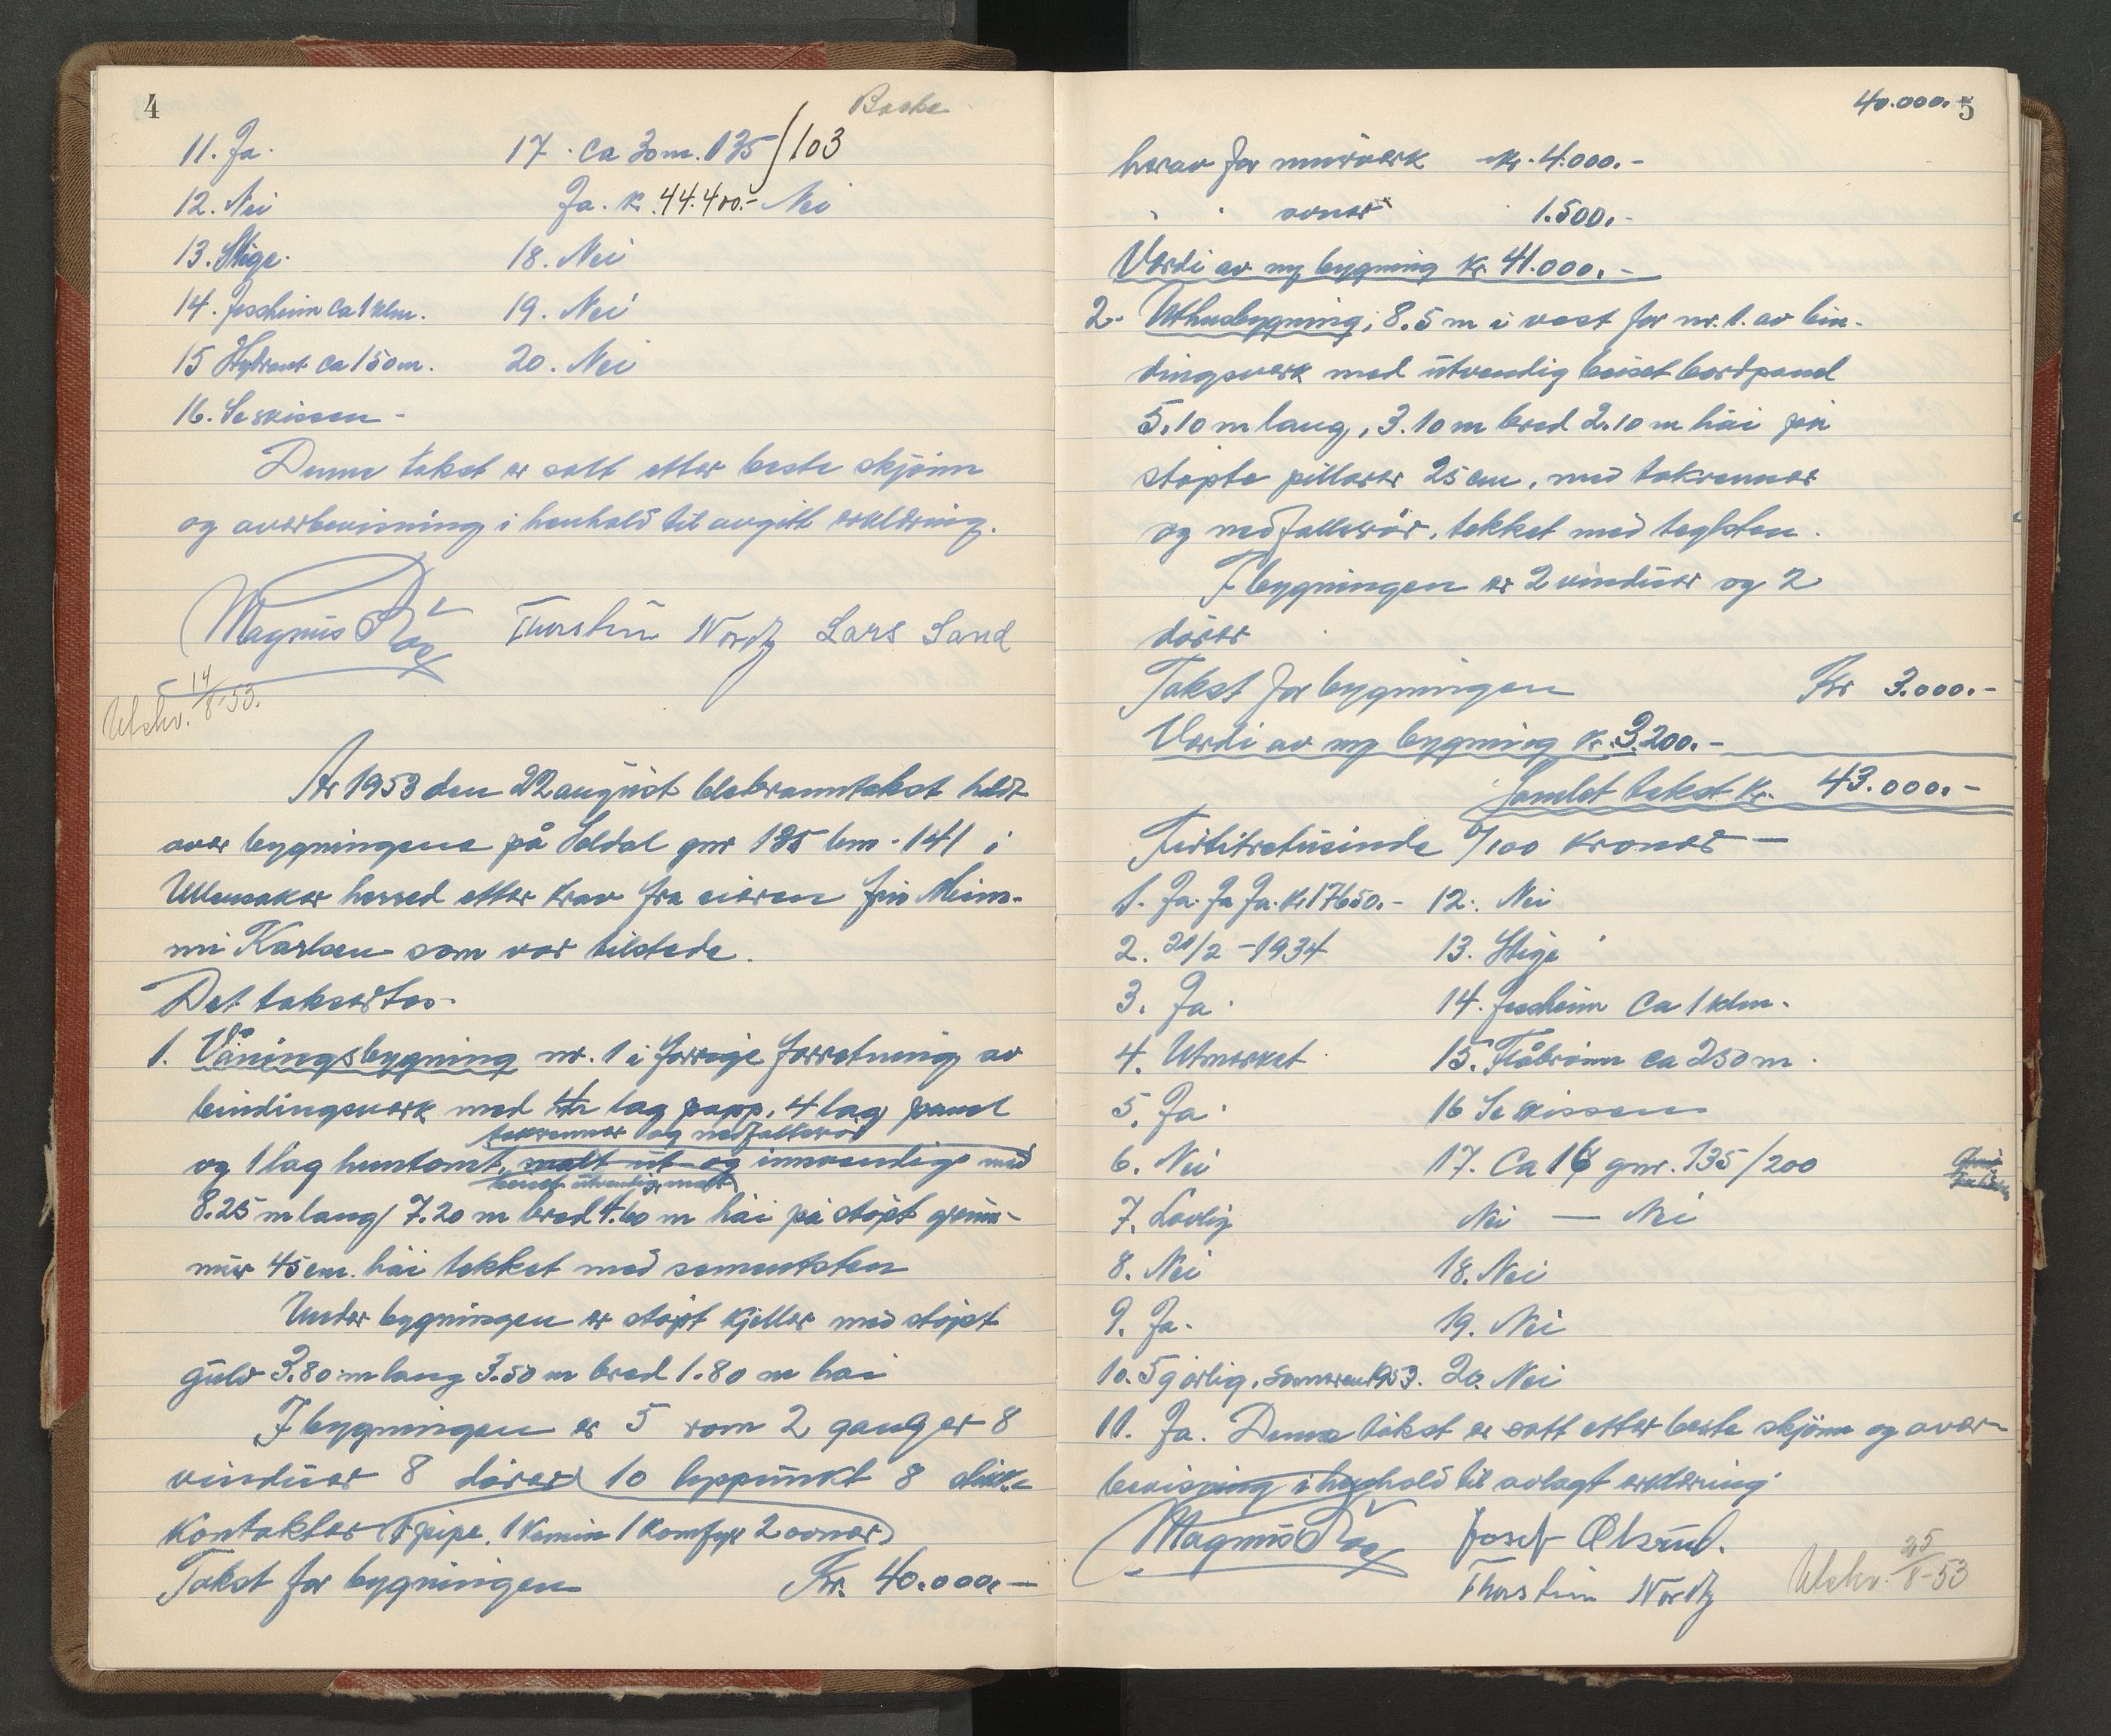 4
11. Ja.
17. Ca 30m. 135/103
12. Nei
Ja. K. 44.400.- Nei
13. Stige.
18. Nei
14. Jessheim ca 1 klm.
19. Nei
15 Hydrant ca 150m.
20. Nei
16. Se skissen -
Denne takst er satt etter beste skjønn
og overbevisning i henhold til avgitt erklæring.
Magnus Thorstein Nordby Lars Sand
Utskr. 14/8-53.
År 1953 den 22 august ble branntakst holdt
over bygningene på Soldal gnr 135 bnr. 141 i
Ullensaker herred etter krav fra eieren fru Mim-
mi Karlsen som var tilstede.
Det taksertes-
1. Våningsbygning nr. 1 i forrige forretning av
bindingsverk med lag papp, 4 lag panel
takrenner og nedfallsrør
og 1 lag huntomt, malt ut og innvendig med
beiset utvendig, malt
8.25 m lang 7.20 m bred 4.60 m høi på støpt grunn-
mur 45 cm. høi tekket med sementsten
Under bygningen er støpt kjeller med støpt
gulv 3.80 m lang 3.50 m bred 1.80 m høi
I bygningen er 5 rom 2 ganger 8
vinduer 8 dører 10 lyspunkt 8 stikk-
kontakter 1 pipe. 1 kamin 1 komfyr 2 ovner
Takst for bygningen Kr. 40.000.-
40.000.- 5
herav for murverk Kr. 4.000.-
" " ovner 1.500.-
Verdi av ny bygning Kr. 41.000.-
2. Uthusbygning; 8.5 m i vest for nr. 1. av bin-
dingsverk med utvendig beiset bordpanel
5.10 m lang, 3.10 m bred 2.10 m høi på
støpte pillarer 25 cm, med takrenner
og nedfallsrør, tekket med teglsten.
I bygningen er 2 vinduer og 2
dører
Takst for bygningen Kr 3.000.-
Verdi av ny bygning Kr. 3.200.-
Samlet takst Kr. 43.000.-
Førtitretusinde 0/100 kroner -
1. Ja. Ja Ja. Kr 17650.-
12. Nei
2. 20/2 - 1934
13. Stige
3. Ja.
14. Jessheim Ca 1 klm.
4. Utmerket
15. Flåbrønn ca 250 m.
5. Ja.
16 Se skissen
6. Nei
17. Ca 16 gnr. 135/200
7. Lovlig
Nei - Nei
8. Nei
18. Nei
9. Ja.
19. Nei
10. 5 gårlig. sommeren 1953.
20. Nei
11. Ja. Denne takst er satt etter beste skjønn og over-
bevisning i henhold til avlagt erklæring
Magnus Josef Olsrud.
Thorstein Nordby
Utskr. 25/8-53